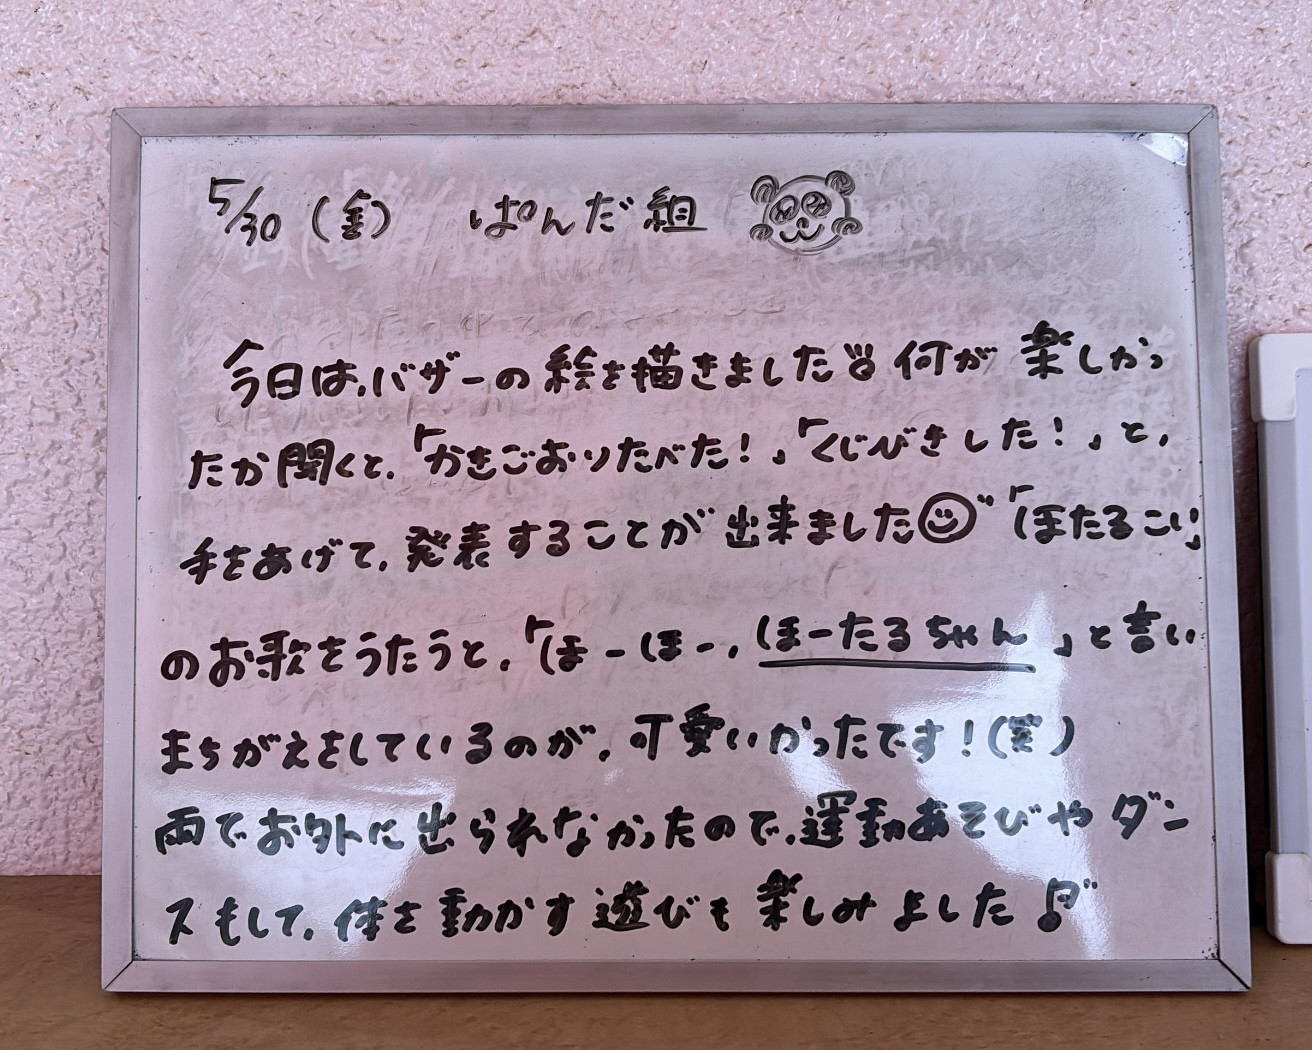 5/30 (金) ぱんだ組
今日は、バザーの絵を描きました 何が 楽しかっ
たか聞くと、「かきごおりたべた!」「くじびきした!」と、
手をあげて、発表することが 出来ました☺ 「ほたるこい」
のお歌をうたうと、「ほーほー、ほーたるちゃん」と言い
まちがえをしているのが、可愛いかったです!(笑)
雨でお外に出られなかったので、運動あそびや ダン
スもして、体を動かす遊びも楽しみました♪